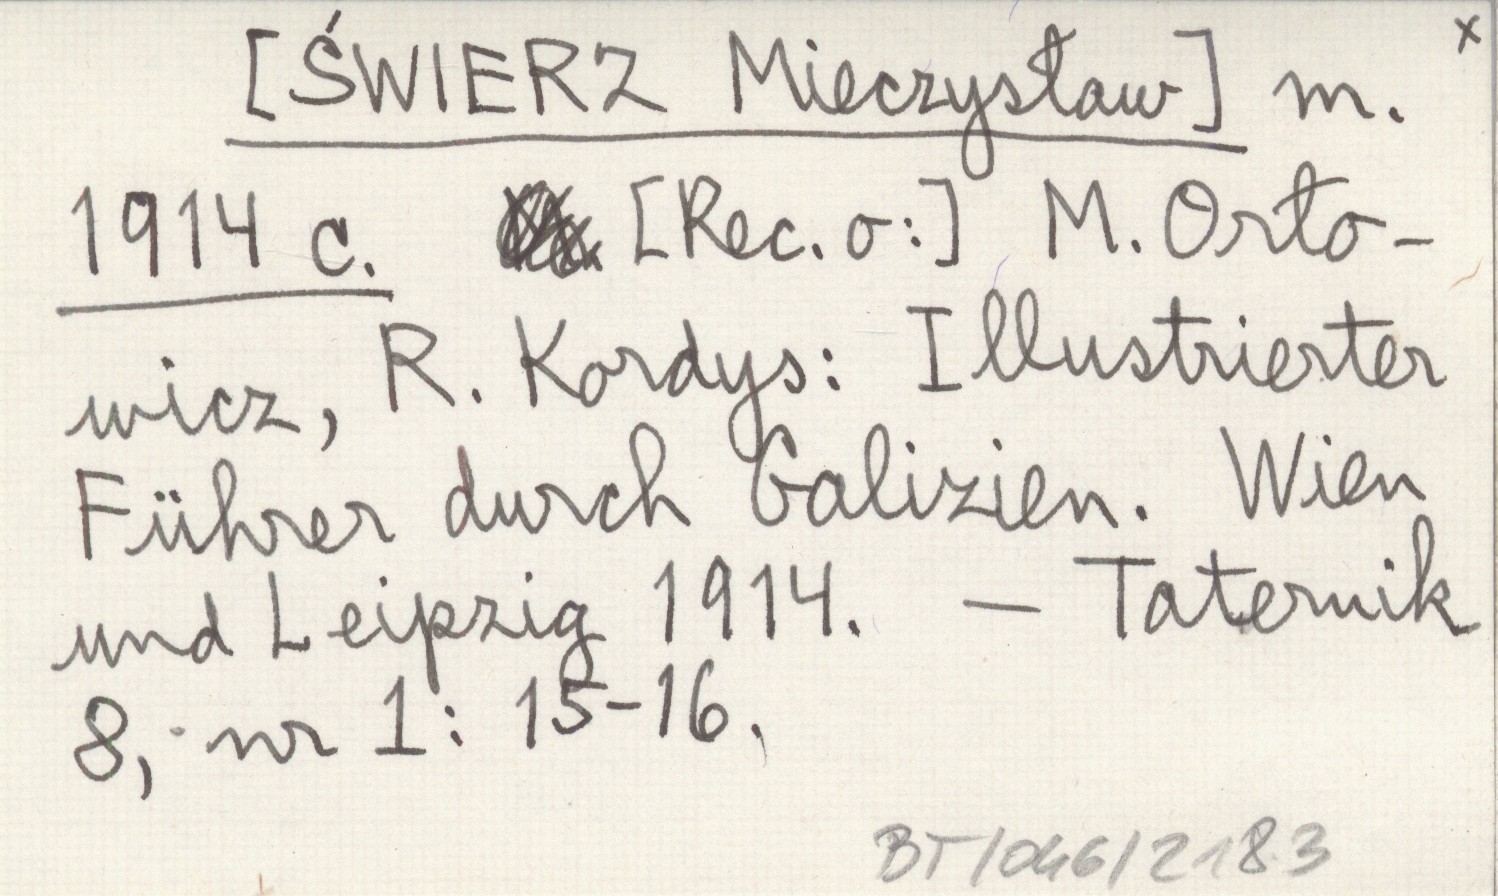 x
[ŚWIERZ Mieczysław] m.
1914 c. [Rec. o:] M. Orło-
wicz, R. Kordys: Illustrierter
Führer durch Galizien. Wien
und Leipzig 1914. — Taternik
8, nr 1: 15-16.
BT/046/2183